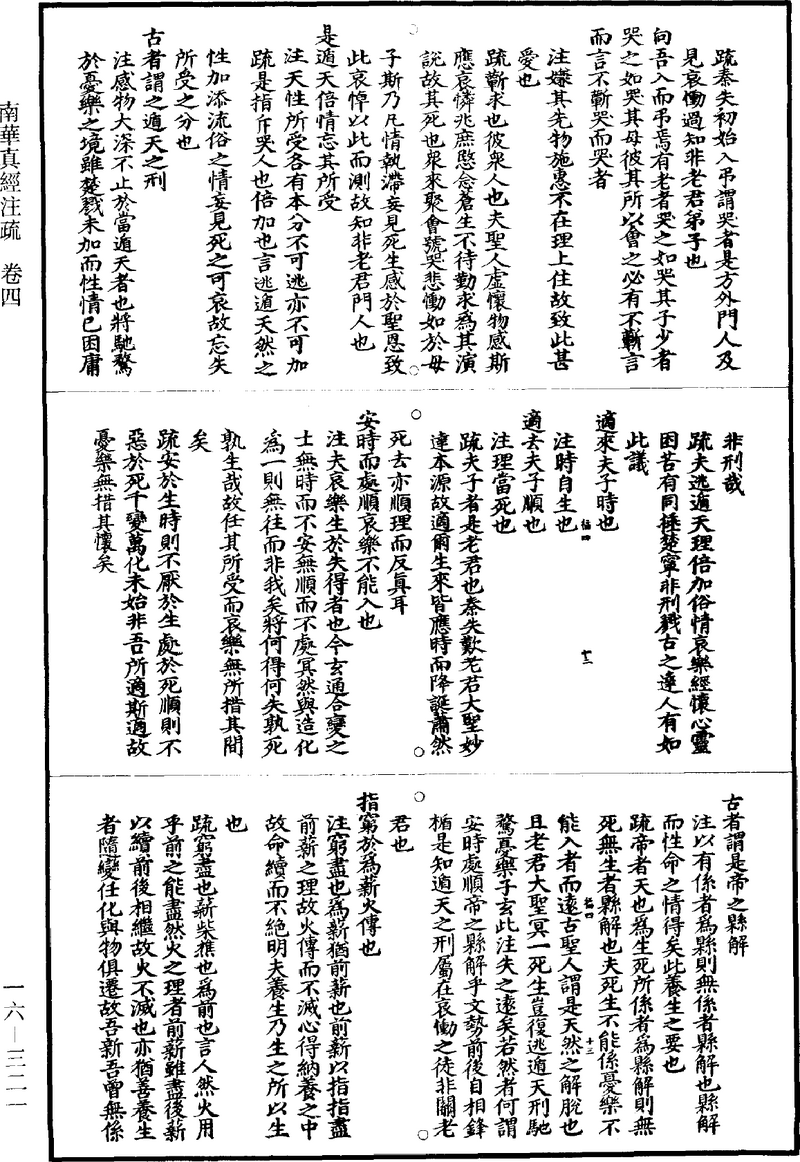 南華真經注疏　卷四
一六—三二一
疏秦失初始入弔謂哭者是方外門人及
見哀慟過知非老君弟子也
向吾入而弔焉有老者哭之如哭其子少者
哭之如哭其母彼其所以會之必有不蘄言
而言不蘄哭而哭者
注嫌其先物施惠不在理上住故致此甚
愛也
疏蘄求也彼衆人也夫聖人虛懷物感斯
應哀憐兆庶愍念蒼生不待勤求為其演
說故其死也衆來聚會號哭悲慟如於母
子斯乃凡情執滯妄見死生感於聖恩致
此哀悼以此而測故知非老君門人也
是遁天倍情忘其所受
注天性所受各有本分不可逃亦不可加
疏是指斥哭人也倍加也言逃遁天然之
性加添流俗之情妄見死之可哀故忘失
所受之分也
古者謂之遁天之刑
注感物大深不止於當遁天者也將馳騖
於憂樂之境雖楚戮未加而性情已困庸
非刑哉
疏夫逃遁天理倍加俗情哀樂經懷心靈
困苦有同捶楚寧非刑戮古之達人有如
此議
適來夫子時也
注時自生也
適去夫子順也
注理當死也
疏夫子者是老君也秦失歎老君大聖妙
達本源故適爾生來皆應時而降誕蕭然
死去亦順理而反真耳
安時而處順哀樂不能入也
注夫哀樂生於失得者也今玄通合變之
士無時而不安無順而不處冥然與造化
為一則無往而非我矣將何得何失孰死
孰生哉故任其所受而哀樂無所措其間
矣
疏安於生時則不厭於生處於死順則不
惡於死千變萬化未始非吾所適斯適故
憂樂無措其懷矣
古者謂是帝之縣解
注以有係者為縣則無係者縣解也縣解
而性命之情得矣此養生之要也
疏帝者天也為生死所係者為縣解則無
死無生者縣解也夫死生不能係憂樂不
能入者而遠古聖人謂是天然之解脫也
且老君大聖冥一死生豈復逃遁天刑馳
騖憂樂子玄此注失之遠矣若然者何謂
安時處順帝之縣解乎文勢前後自相鋒
楯是知遁天之刑屬在哀慟之徒非關老
君也
指窮於為薪火傳也
注窮盡也為薪猶前薪也前薪以指指盡
前薪之理故火傳而不滅心得納養之中
故命續而不絕明夫養生乃生之所以生
也
疏窮盡也薪柴樵也為前也言人然火用
乎前之能盡然火之理者前薪雖盡後薪
以續前後相繼故火不滅也亦猶善養生
者隨變任化與物俱遷故吾新吾曾無係